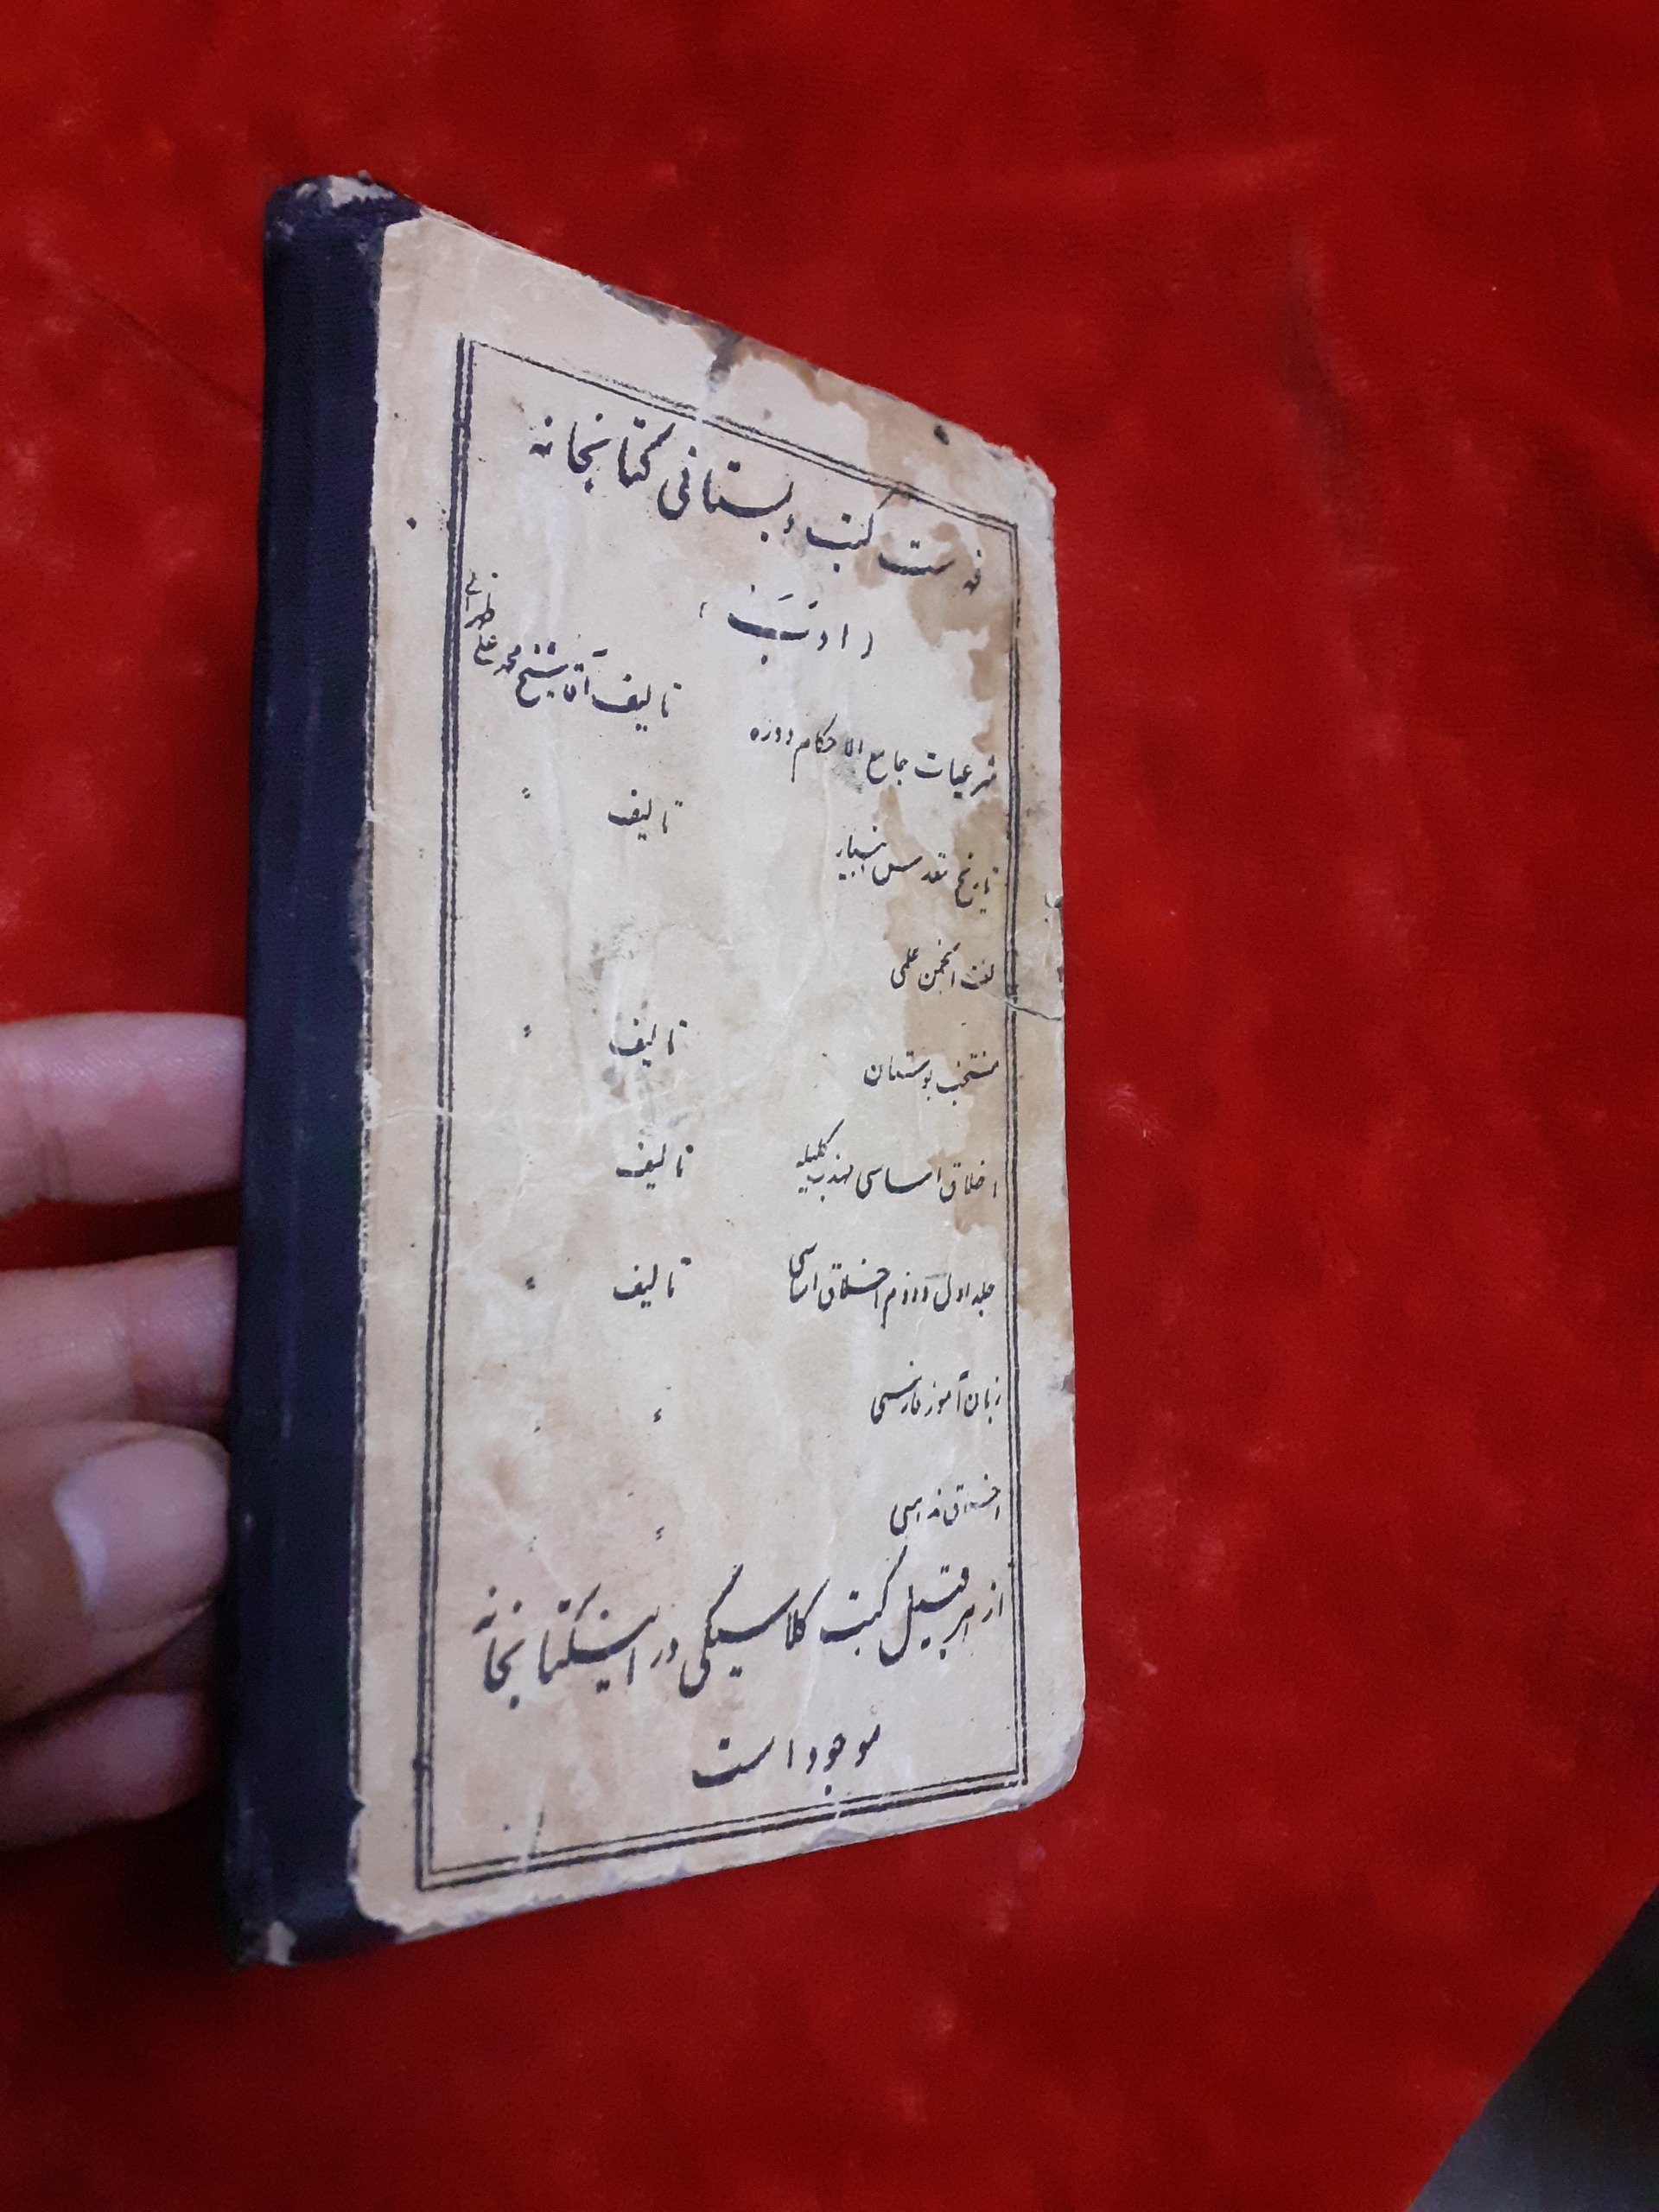 فهرست کتب دبستانی کتابخانه
(ادب)
شرعیات جامع الاحکام دوره تالیف آقا شیخ محمد علی طهرانی
تاریخ مقدس انبیاء تالیف "
لغت انجمن علمی
منتخب بوستان تالیف "
اخلاق اساسی مهذب کلیله تالیف
جلد اول و دوم اخلاق اساسی تالیف "
زبان آموز فارسی " "
اخلاق مذهبی " "
از هر قبیل کتب کلاسیکی در این کتابخانه
موجود است